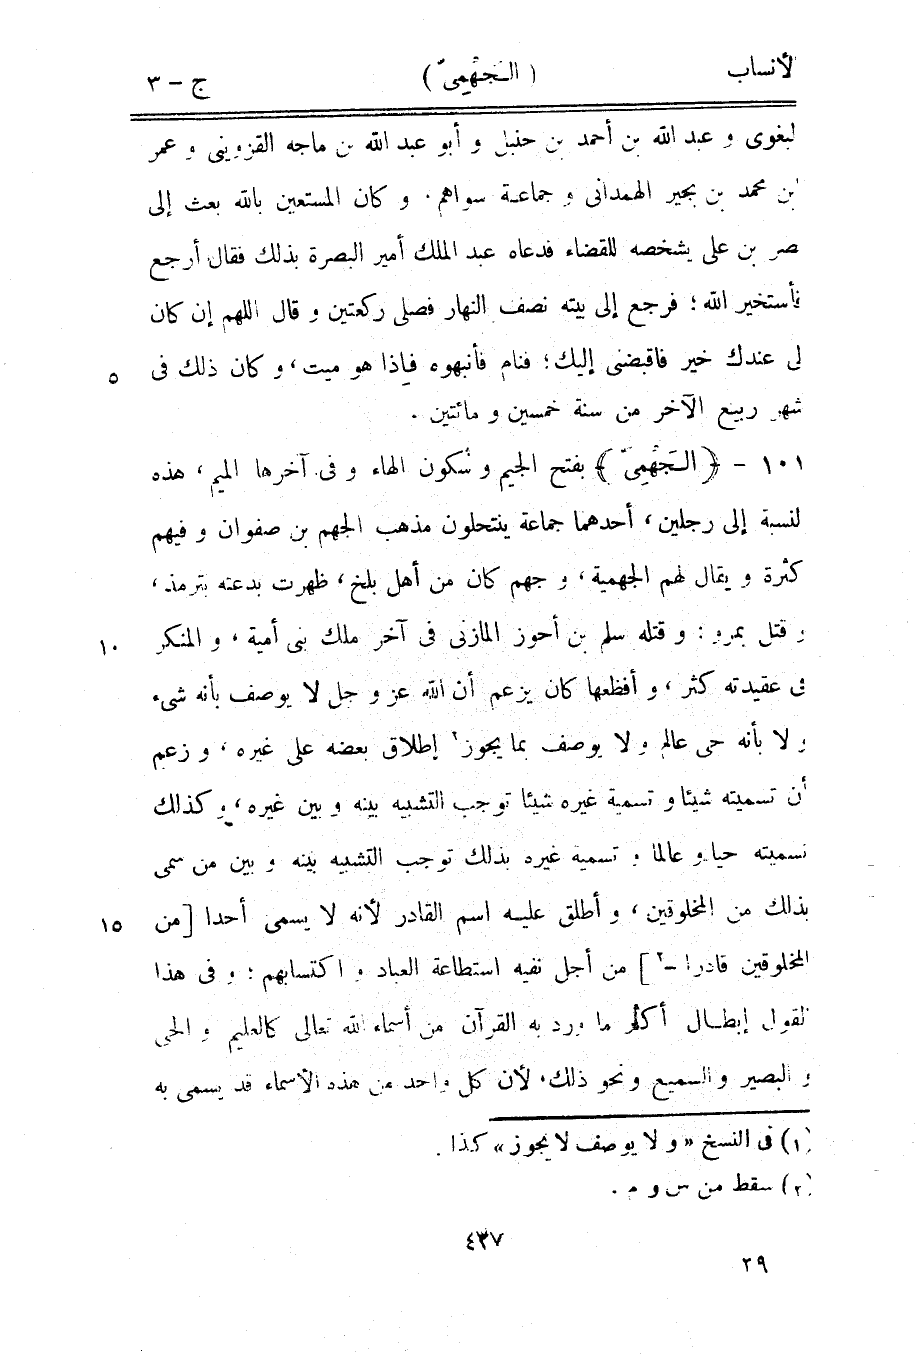 لأنساب ( الجَهْمِىّ ) ج - ٣
لبغوى و عبد الله بن أحمد بن حنبل و أبو عبد الله بن ماجه القزوينى و عمر
بن محمد بن بجير الهمدانى و جماعة سواهم . و كان المستعين بالله بعث إلى
صر بن على يشخصه للقضاء فدعاه عبد الملك أمير البصرة بذلك فقال أرجع
فأستخير الله ؛ فرجع إلى بيته نصف النهار فصلى ركعتين و قال اللهم إن كان
لى عندك خير فاقبضنى إليك ؛ فنام فأنبهوه فإذا هو ميت ، و كان ذلك فى ٥
شهر ربيع الآخر من سنة خمسين و مائتين .
١٠١ - ﴿ الجَهْمِىّ ﴾ بفتح الجيم و سُكون الهاء و فى آخرها الميم ، هذه
لنسبة إلى رجلين ، أحدهما جماعة ينتحلون مذهب الجهم بن صفوان و فيهم
كثرة و يقال لهم الجهمية ، و جهم كان من أهل بلخ ، ظهرت بدعته بترمذ ،
و قتل بمرو ؛ و قتله سلم بن أحوز المازنى فى آخر ملك بنى أمية ، و المنكر ١٠
فى عقيدته كثر ، و أفظعها كان يزعم أن الله عز و جل لا يوصف بأنه شىء
و لا بأنه حى عالم و لا يوصف بما يجوز ٢ إطلاق بعضه على غيره ، و زعم
أن تسميته شيئا و تسمية غيره شيئا توجب التشبيه بينه و بين غيره ، و كذلك
تسميته حيا و عالما و تسمية غيره بذلك توجب التشبيه بينه و بين من سمى
بذلك من المخلوقين ، و أطلق عليه اسم القادر لأنه لا يسمى أحدا [ من ١٥
المخلوقين قادرا - ٢ ] من أجل نفيه استطاعة العباد و اكتسابهم ؛ و فى هذا
لقول إبطال أكثر ما ورد به القرآن من أسماء الله تعالى كالعليم و الحى
و البصير و السميع و نحو ذلك ، لأن كل واحد من هذه الأسماء قد يسمى به
(١) فى النسخ « و لا يوصف لا يجوز » كذا .
(٢) سقط من س و م .
٤٣٧
٢٩